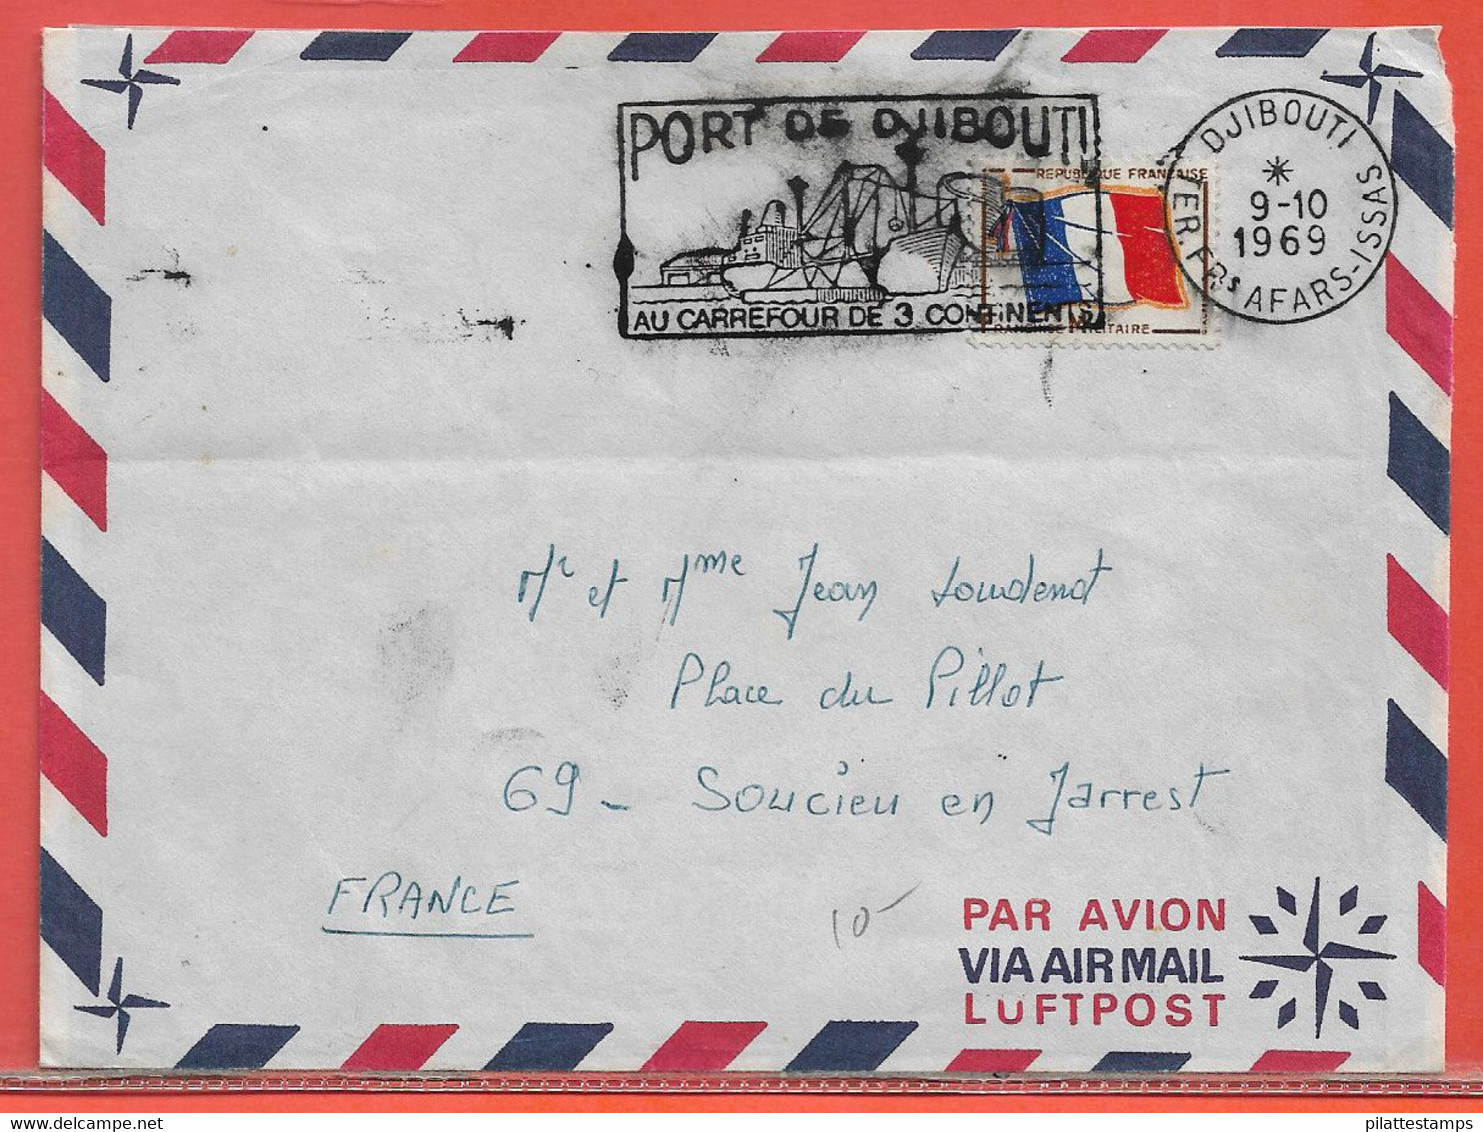 PORT DE DJIBOUTI
AU CARREFOUR DE 3 CONTINENTS
REPUBLIQUE FRANÇAISE
FRANCHISE MILITAIRE
DJIBOUTI
9-10
1969
TER. FRs AFARS-ISSAS
Mr et Mme Jean Loudenot
Place du Pillot
69 - Soucieu en Jarrest
FRANCE
10-
PAR AVION
VIA AIR MAIL
LUFTPOST
pilattestamps